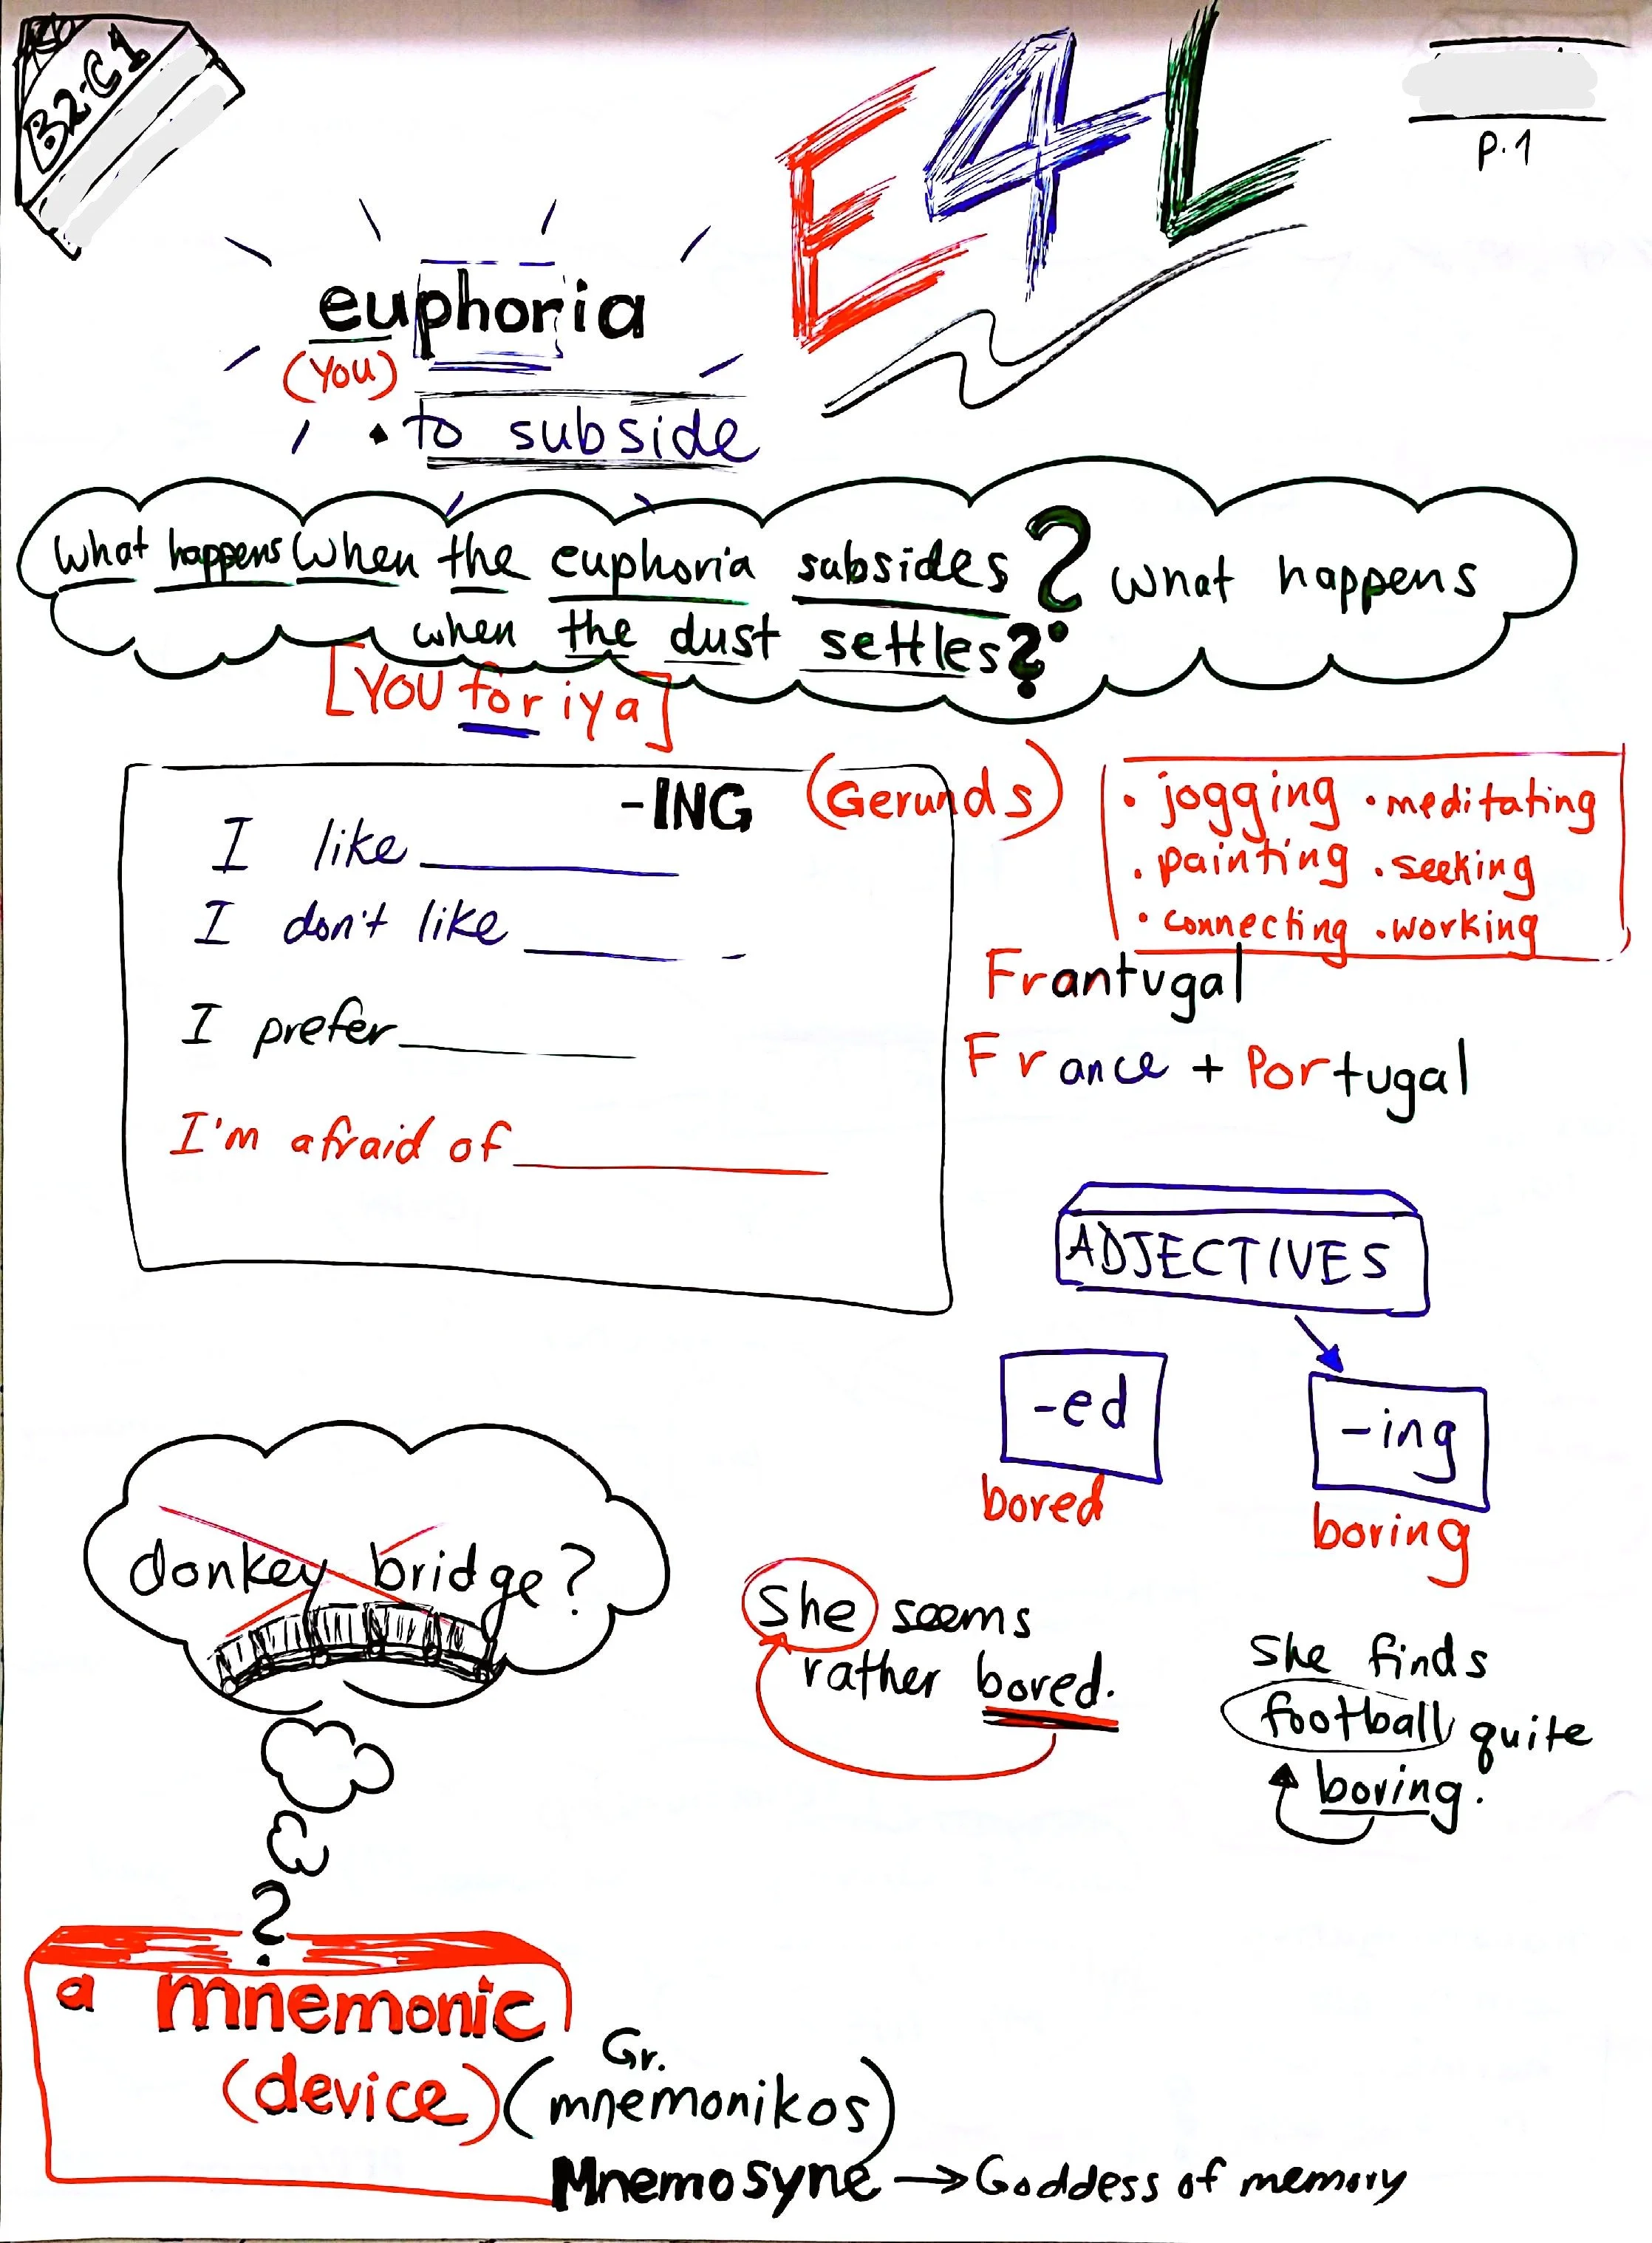 B2-C1
E4L
p.1
euphoria
(YOU)
• to subside
What happens when the euphoria subsides? What happens
when the dust settles?
[YOU for iya]
-ING (Gerunds)
I like
I don't like
I prefer
I'm afraid of
• jogging • meditating
• painting • seeking
• connecting • working
Frantugal
France + Portugal
ADJECTIVES
-ed
bored
-ing
boring
She seems
rather bored.
She finds
football quite
boring.
donkey bridge?
?
a mnemonic
(device) (Gr.
mnemonikos)
Mnemosyne → Goddess of memory